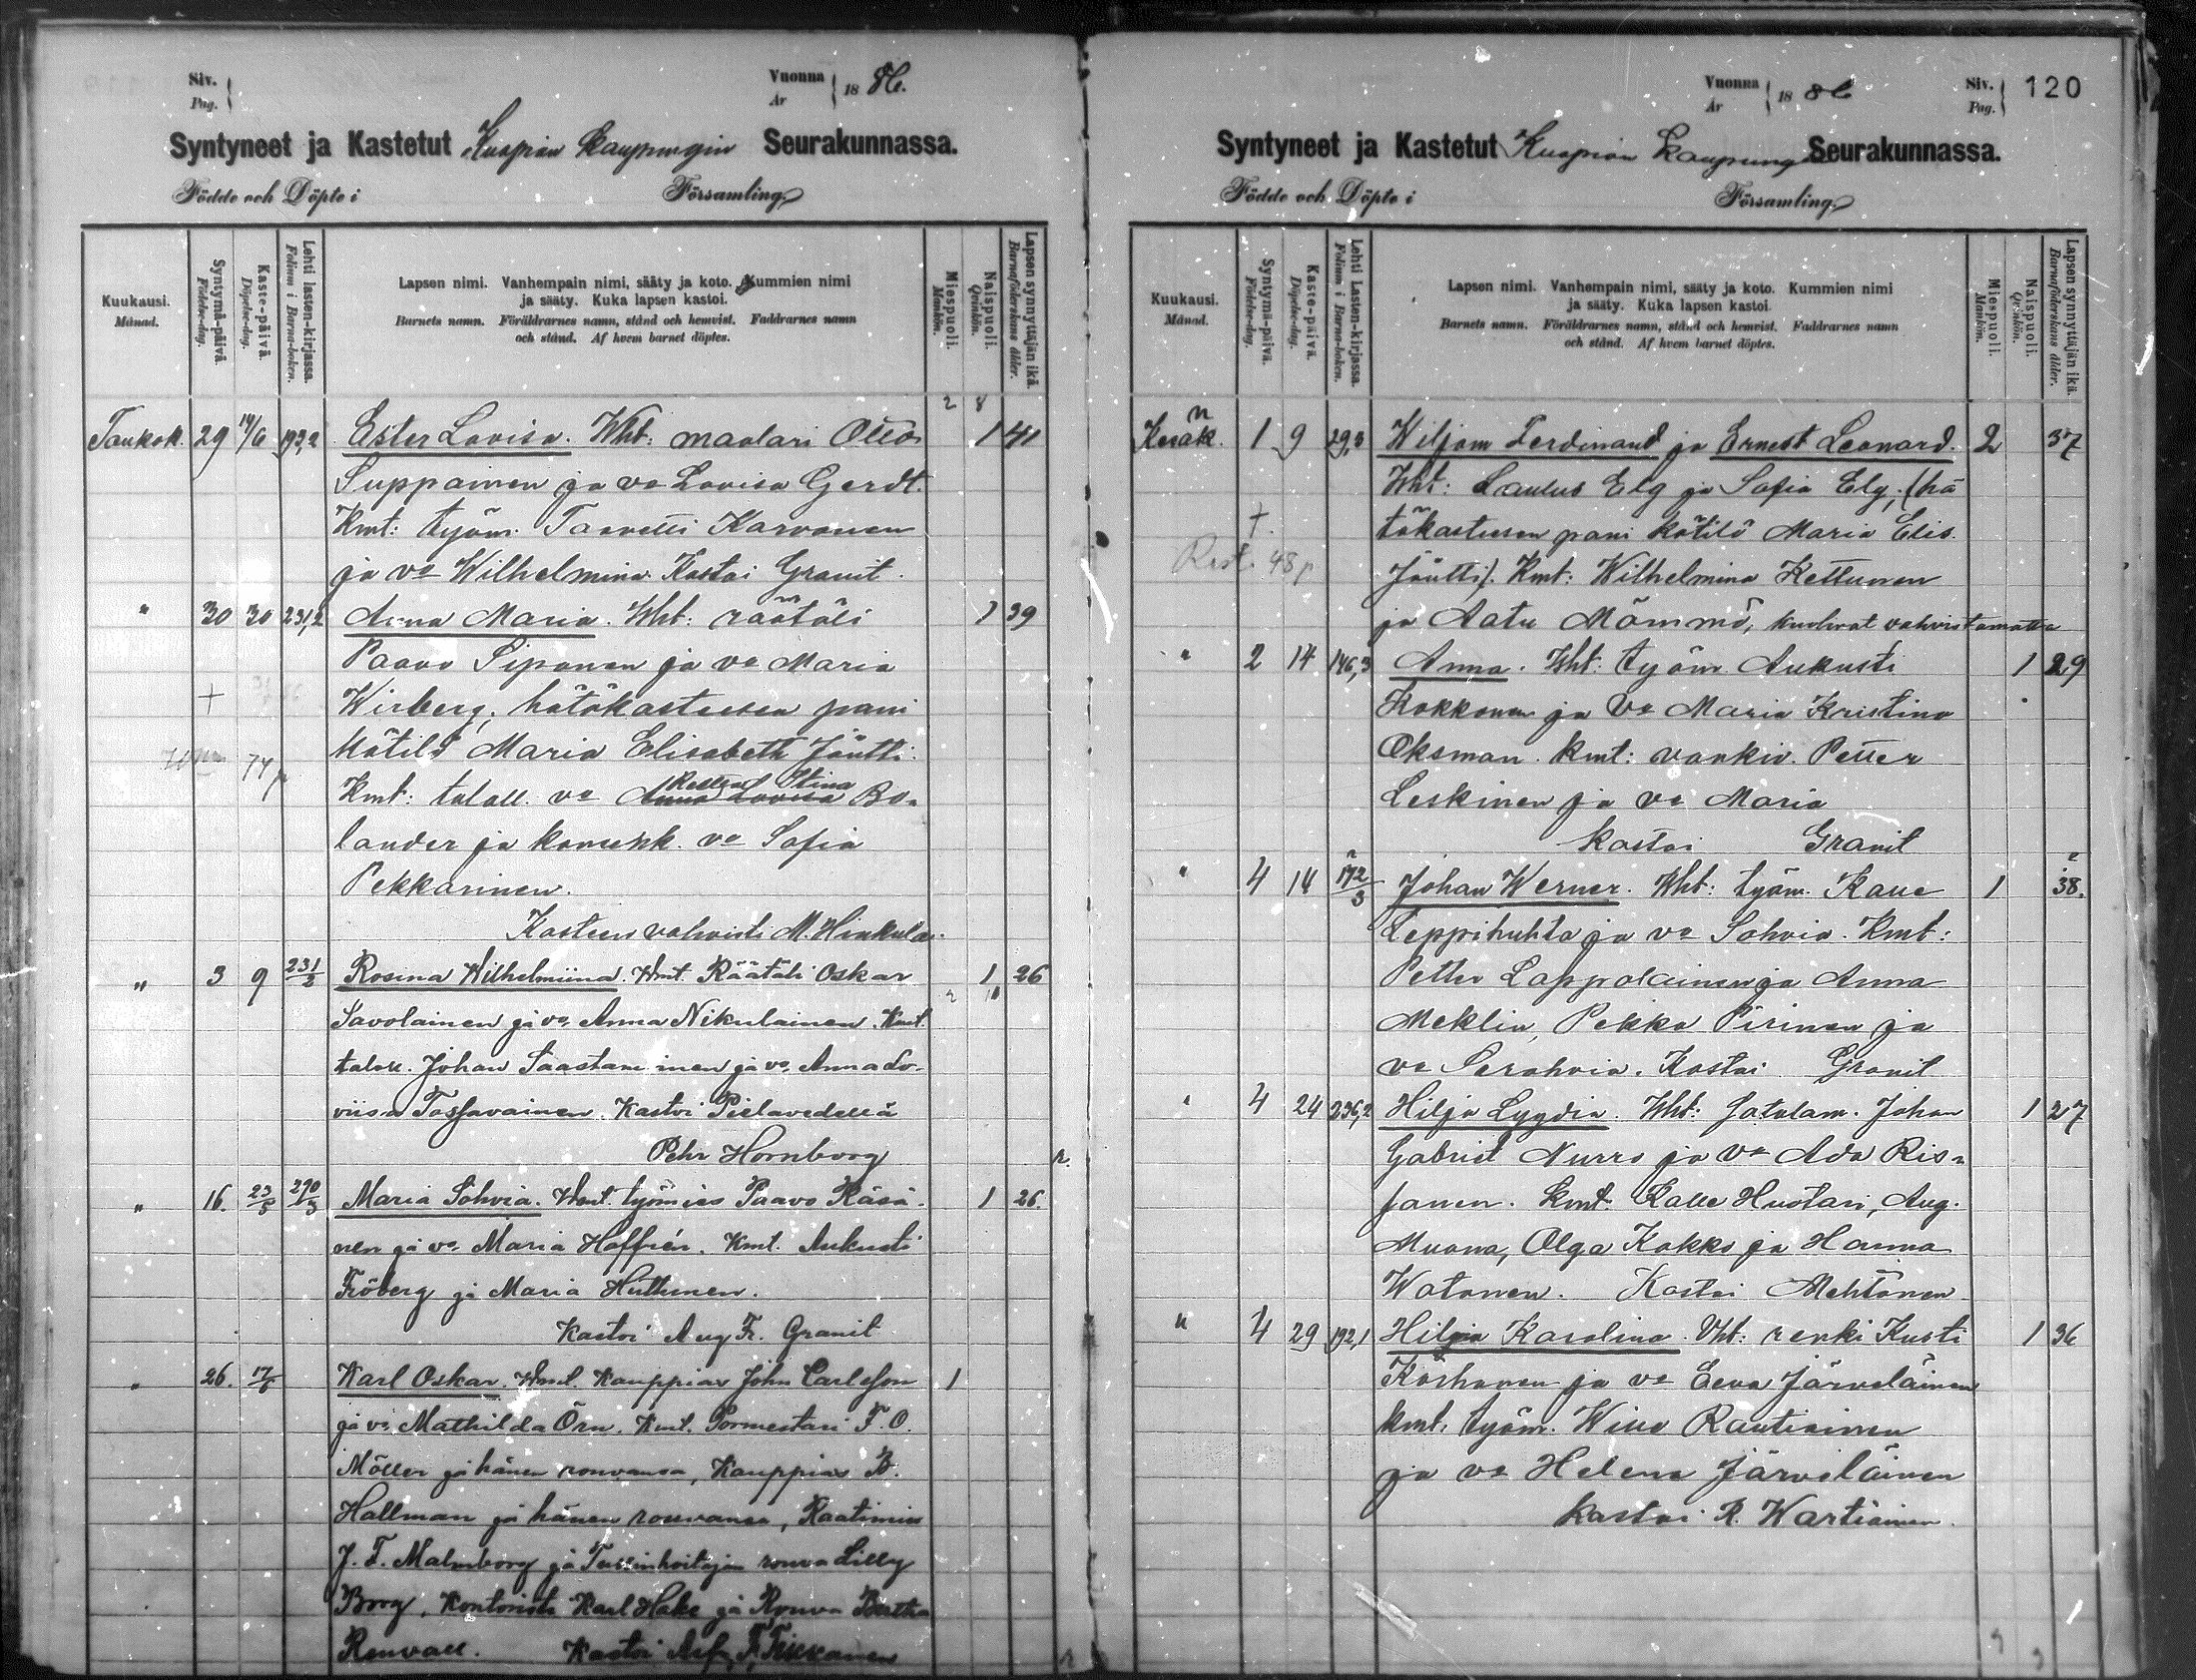 Siv.
Pag.
Vuonna
År
18 86.
Syntyneet ja Kastetut Kuopion kaupungin Seurakunnassa.
Födde och Döpte i
Församling
Kuukausi.
Månad.
Syntymä-päivä.
Födelse-dag.
Kaste-päivä.
Döpelse-dag.
Lehti lasten-kirjassa.
Folium i Barna-boken.
Lapsen nimi. Vanhempain nimi, sääty ja koto. Kummien nimi
ja sääty. Kuka lapsen kastoi.
Barnets namn. Föräldrarnes namn, stånd och hemvist. Faddrarnes namn
och stånd. Af hvem barnet döptes.
Miespuoli.
Mankön.
Naispuoli.
Qvinkön.
Lapsen synnyttäjän ikä.
Barnaföderskans ålder.
2 8
Toukok. 29 14/6 193,2 Ester Lovisa. Wht: maalari Otto 1 41
Suppainen ja vo Lovisa Gerdt.
Kmt: työm. Taavetti Karvonen
ja vo Wilhelmina Kastoi Granit.
" 30 30 231,2 Anna Maria. Wht: räätäli 1 39
Paavo Siponen ja vo Maria
+ Wirberg; hätäkasteesen pani
Kätilö Maria Elisabeth Jäntti.
74 p
Stina
Kmt: talall. vo Anna Lovisa Bo-
lander ja komskk. vo Sofia
Pekkarinen.
Kasteen vahvisti M. Hinkula.
" 3 9 231/2 Rosina Wilhelmiina. Wmt. Räätäli Oskar 1 26
Savolainen ja vo Anna Nikulainen. Kmt.
talon. Johan Saastamoinen ja vo Anna Lo-
viisa Tossavainen. Kastoi Pielavedellä
Pehr Hornborg
" 16. 23/5 290/3 Maria Sohvia. Wmt. työmies Paavo Räsä- 1 26.
nen ja vo Maria Hoffrén. Kmt. Aukusti
Fröberg ja Maria Huttunen.
Kastoi Aug Fr. Granit
" 26. 17/6 Karl Oskar. Wmt. Kauppias John Carlsson 1
ja vo Mathilda Örn. Kmt. Pormestari F. O.
Möller ja hänen rouvansa, Kauppias B.
Hallman ja hänen rouvansa, Raatimies
J. F. Malmborg ja Tullinhoitajan rouva Lilly
Borg, Kontoristi Karl Hake ja Rouva Bertha
Renvall. Kastoi
Vuonna
År
18 86
Siv.
Pag.
120
Syntyneet ja Kastetut Kuopion kaupungin Seurakunnassa.
Födde och Döpte i
Församling
Kuukausi.
Månad.
Syntymä-päivä.
Födelse-dag.
Kaste-päivä.
Döpelse-dag.
Lehti Lasten-kirjassa.
Folium i Barna-boken.
Lapsen nimi. Vanhempain nimi, sääty ja koto. Kummien nimi
ja sääty. Kuka lapsen kastoi.
Barnets namn. Föräldrarnes namn, stånd och hemvist. Faddrarnes namn
och stånd. Af hvem barnet döptes.
Miespuoli.
Mankön.
Naispuoli.
Qvinkön.
Lapsen synnyttäjän ikä.
Barnaföderskans ålder.
Kesäk. 1 9 29,3 Wiljam Ferdinand ja Ernest Leonard. 2 37
Wht: Paulus Elg ja Sofia Elg; (hä
+. täkasteesen pani kätilö Maria Elis.
48 p Jäntti). Kmt: Wilhelmina Kettunen
ja Aatu Mömmö, kuolivat vahvistamatta
" 2 14 146,3 Anna. Wht: työm. Aukusti 1 29
Kokkonen ja vo Maria Kristina
Oksman. Kmt: vankiv. Petter
Leskinen ja vo Maria
Kastoi Granit
" 4 14 172/3 Johan Werner. Wht: työm. Kalle 1 38.
Leppihuhta ja vo Sohvia. Kmt:
Petter Lappalainen ja Anna
Meklin, Pekka Pirinen ja
vo Serahvia. Kastoi Granit
" 4 24 236,2 Hilja Lyydia. Wht: satulam. Johan 1 27
Gabriel Nurro ja vo Ada Ris-
sanen. Kmt. Kalle Huotari, Aug.
Muona, Olga Kokko ja Hanna
Watanen. Kastoi Mehtonen
" 4 29 192,1 Hilja Karolina. Vht: renki Kusti 1 36
Korhonen ja vo Eeva Järveläinen
kmt. työm. Wino Rautiainen
ja vo Helena Järveläinen
Kastoi R. Wartiainen.